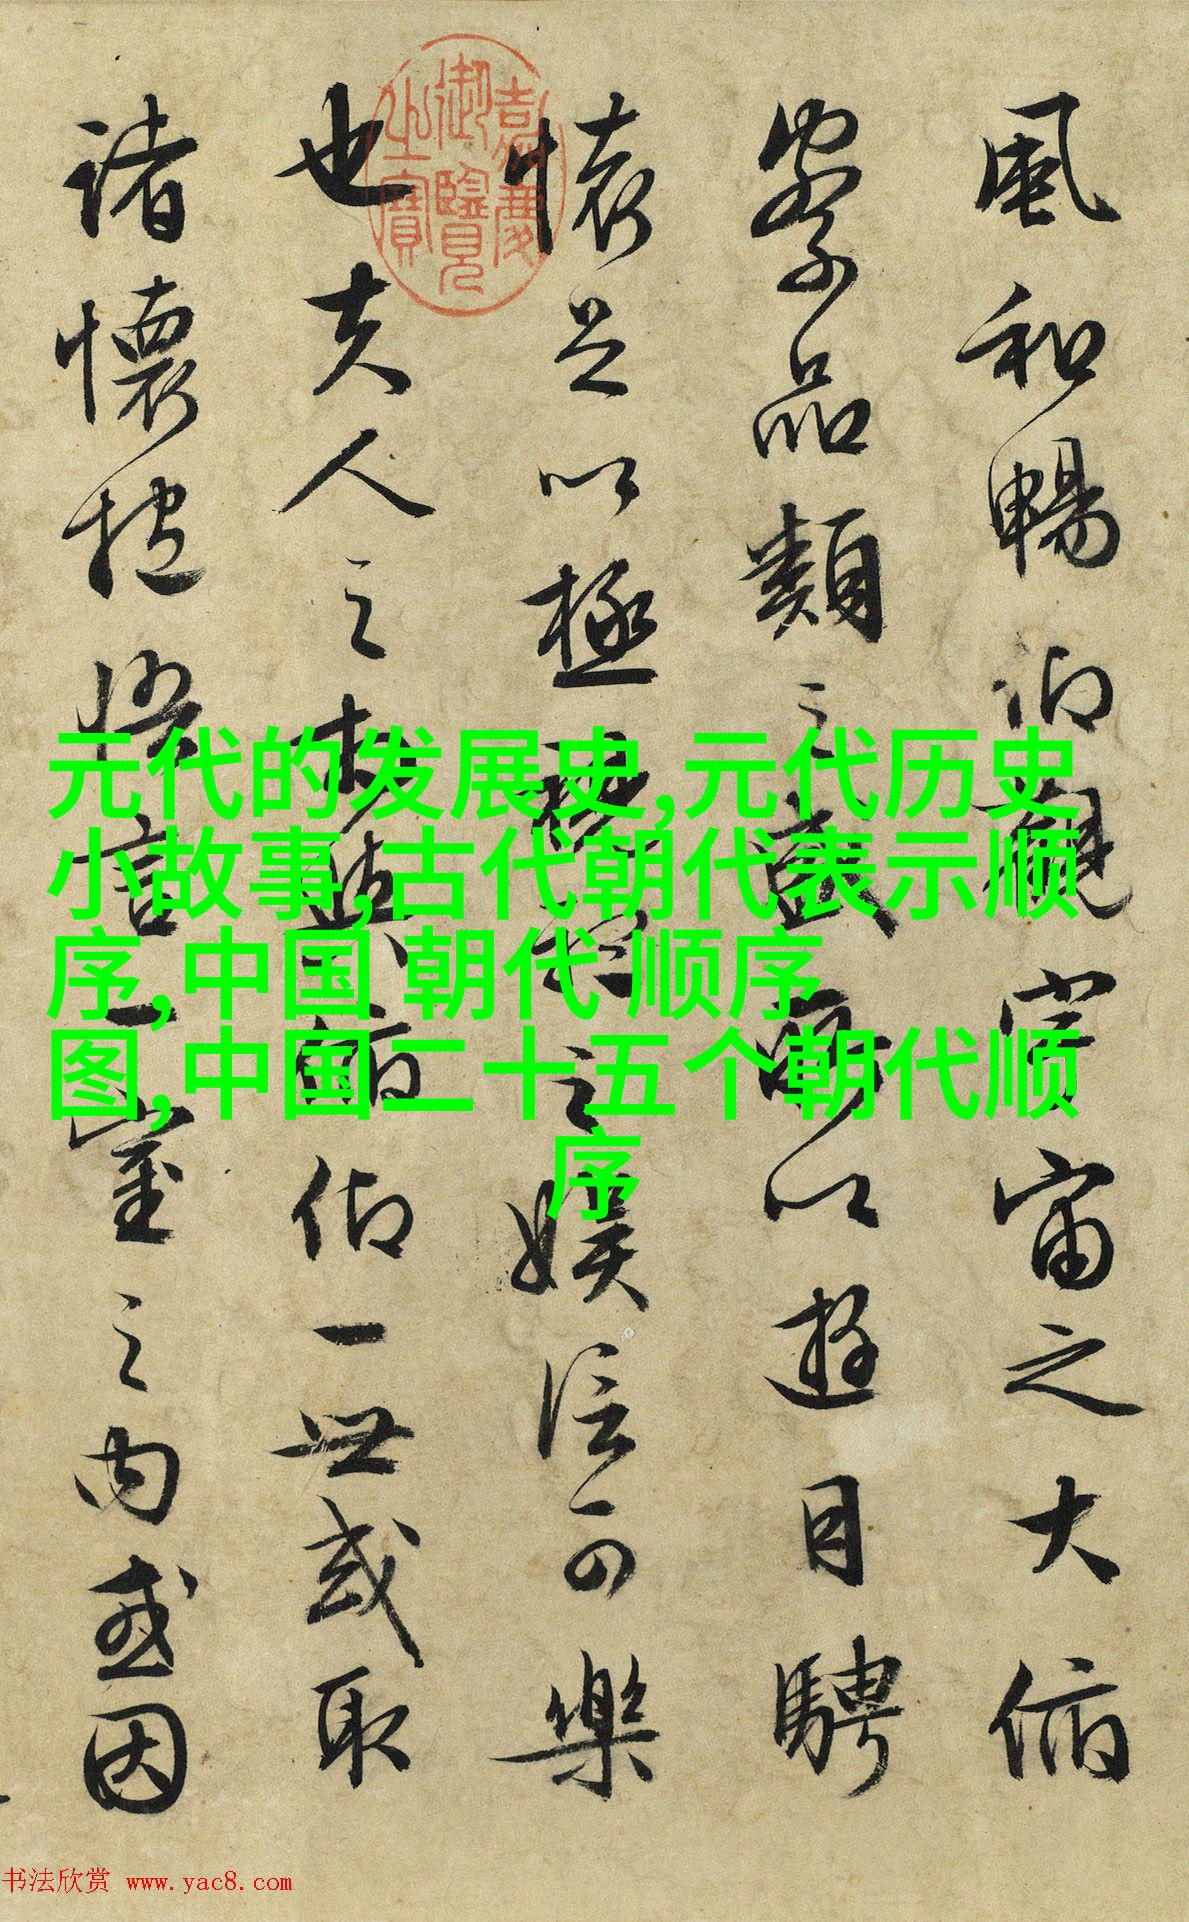 風和暢仰觀宇宙之大俯
察品類之盛所以遊目騁
懷足以極視聽之娛信可樂
也夫人之相與俯仰一世或取
諸懷抱悟言一室之內或因
嘉慶
御覽
之寶
元代的发展史,元代历史
小故事,古代朝代表示顺
序,中国 朝代 顺序
图,中国二十五个朝代顺
序
书法欣赏 www.yac8.com